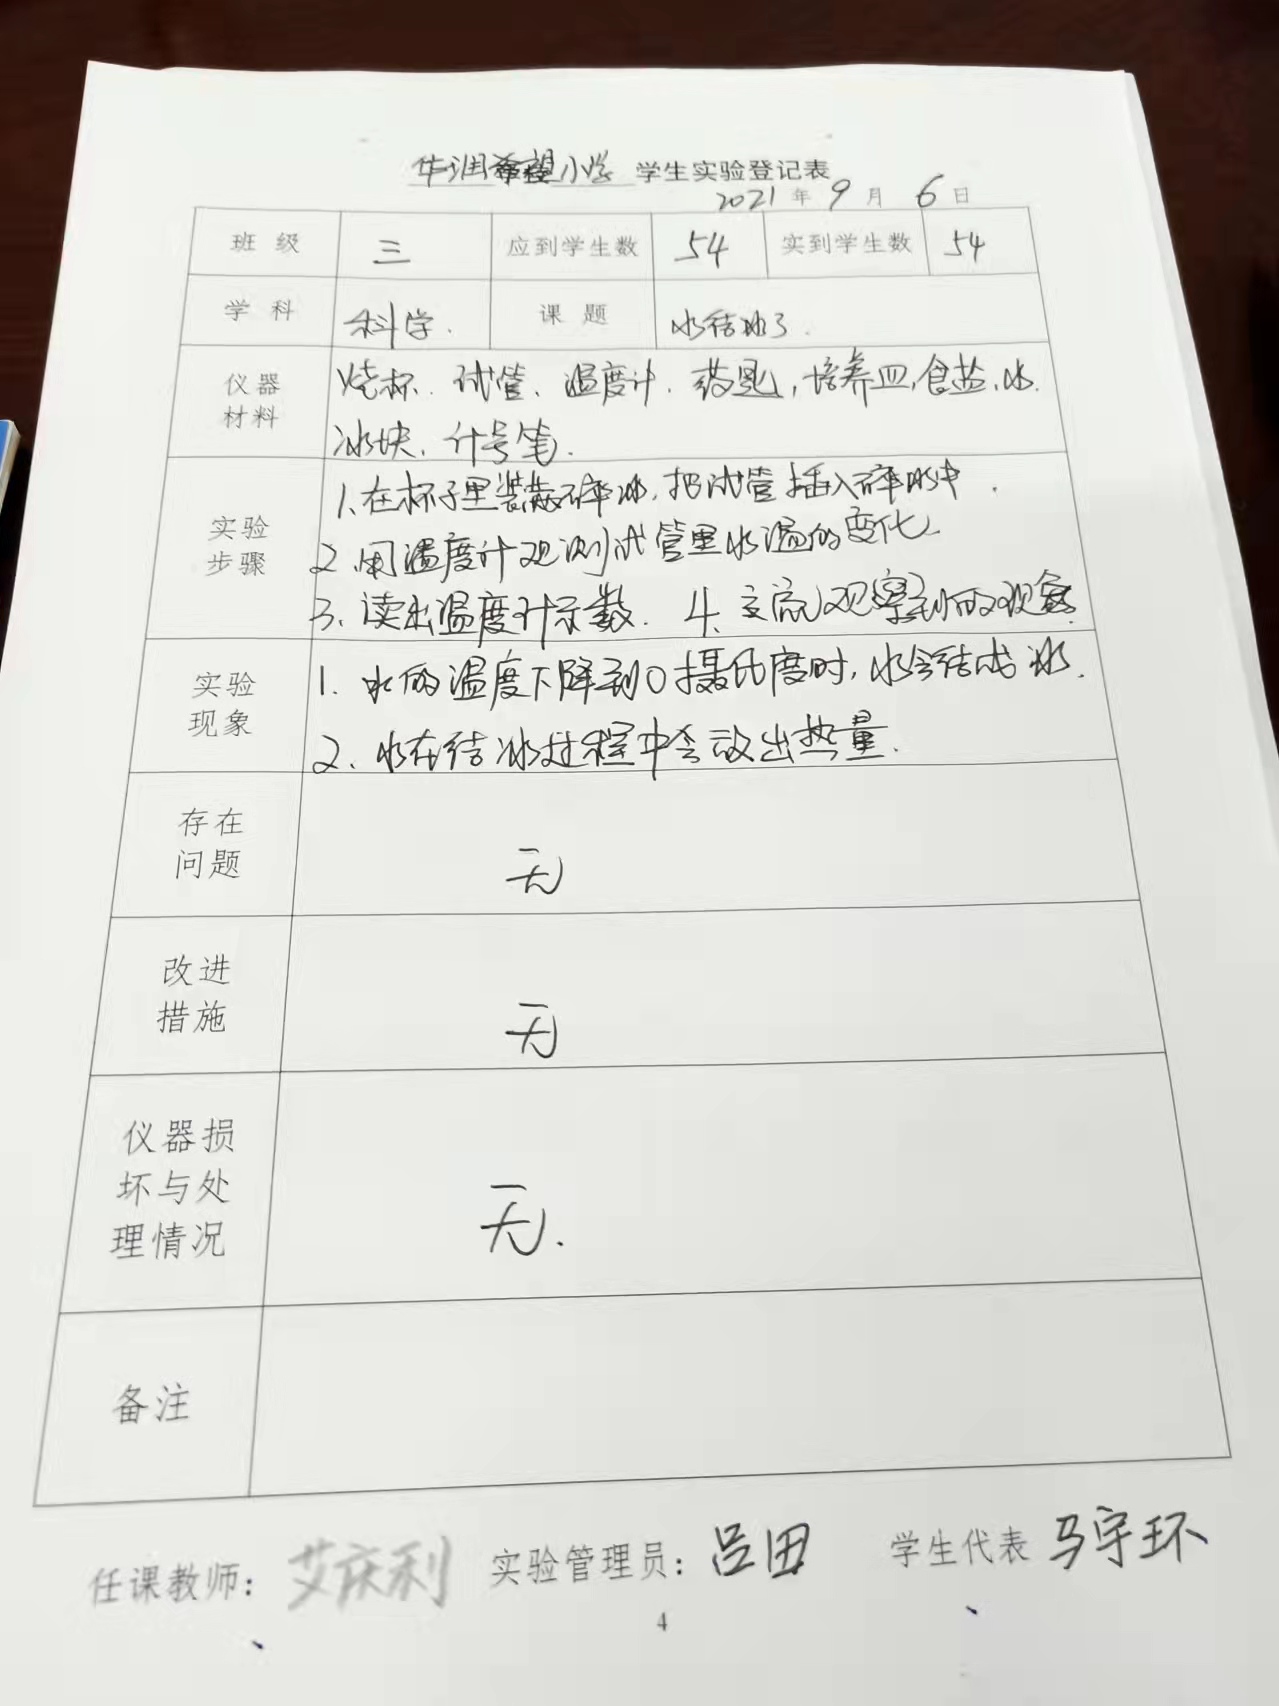 华润希望小学 学生实验登记表
2021 年 9 月 6 日
班 级 三 应到学生数 54 实到学生数 54
学 科 科学. 课 题 水结冰了.
仪器材料 烧杯、试管、温度计、药匙,培养皿,食盐、水、
冰块、计号笔.
实验步骤 1、在杯子里装满碎冰,把试管插入碎冰中.
2、用温度计观测试管里水温的变化
3、读出温度计示数. 4、交流观察到的现象
实验现象 1. 水的温度下降到0摄氏度时,水会结成冰.
2、水在结冰过程中会放出热量.
存在问题 无
改进措施 无
仪器损坏与处理情况 无.
备注
任课教师: 艾庆利 实验管理员: 吕田 学生代表 马守环
4